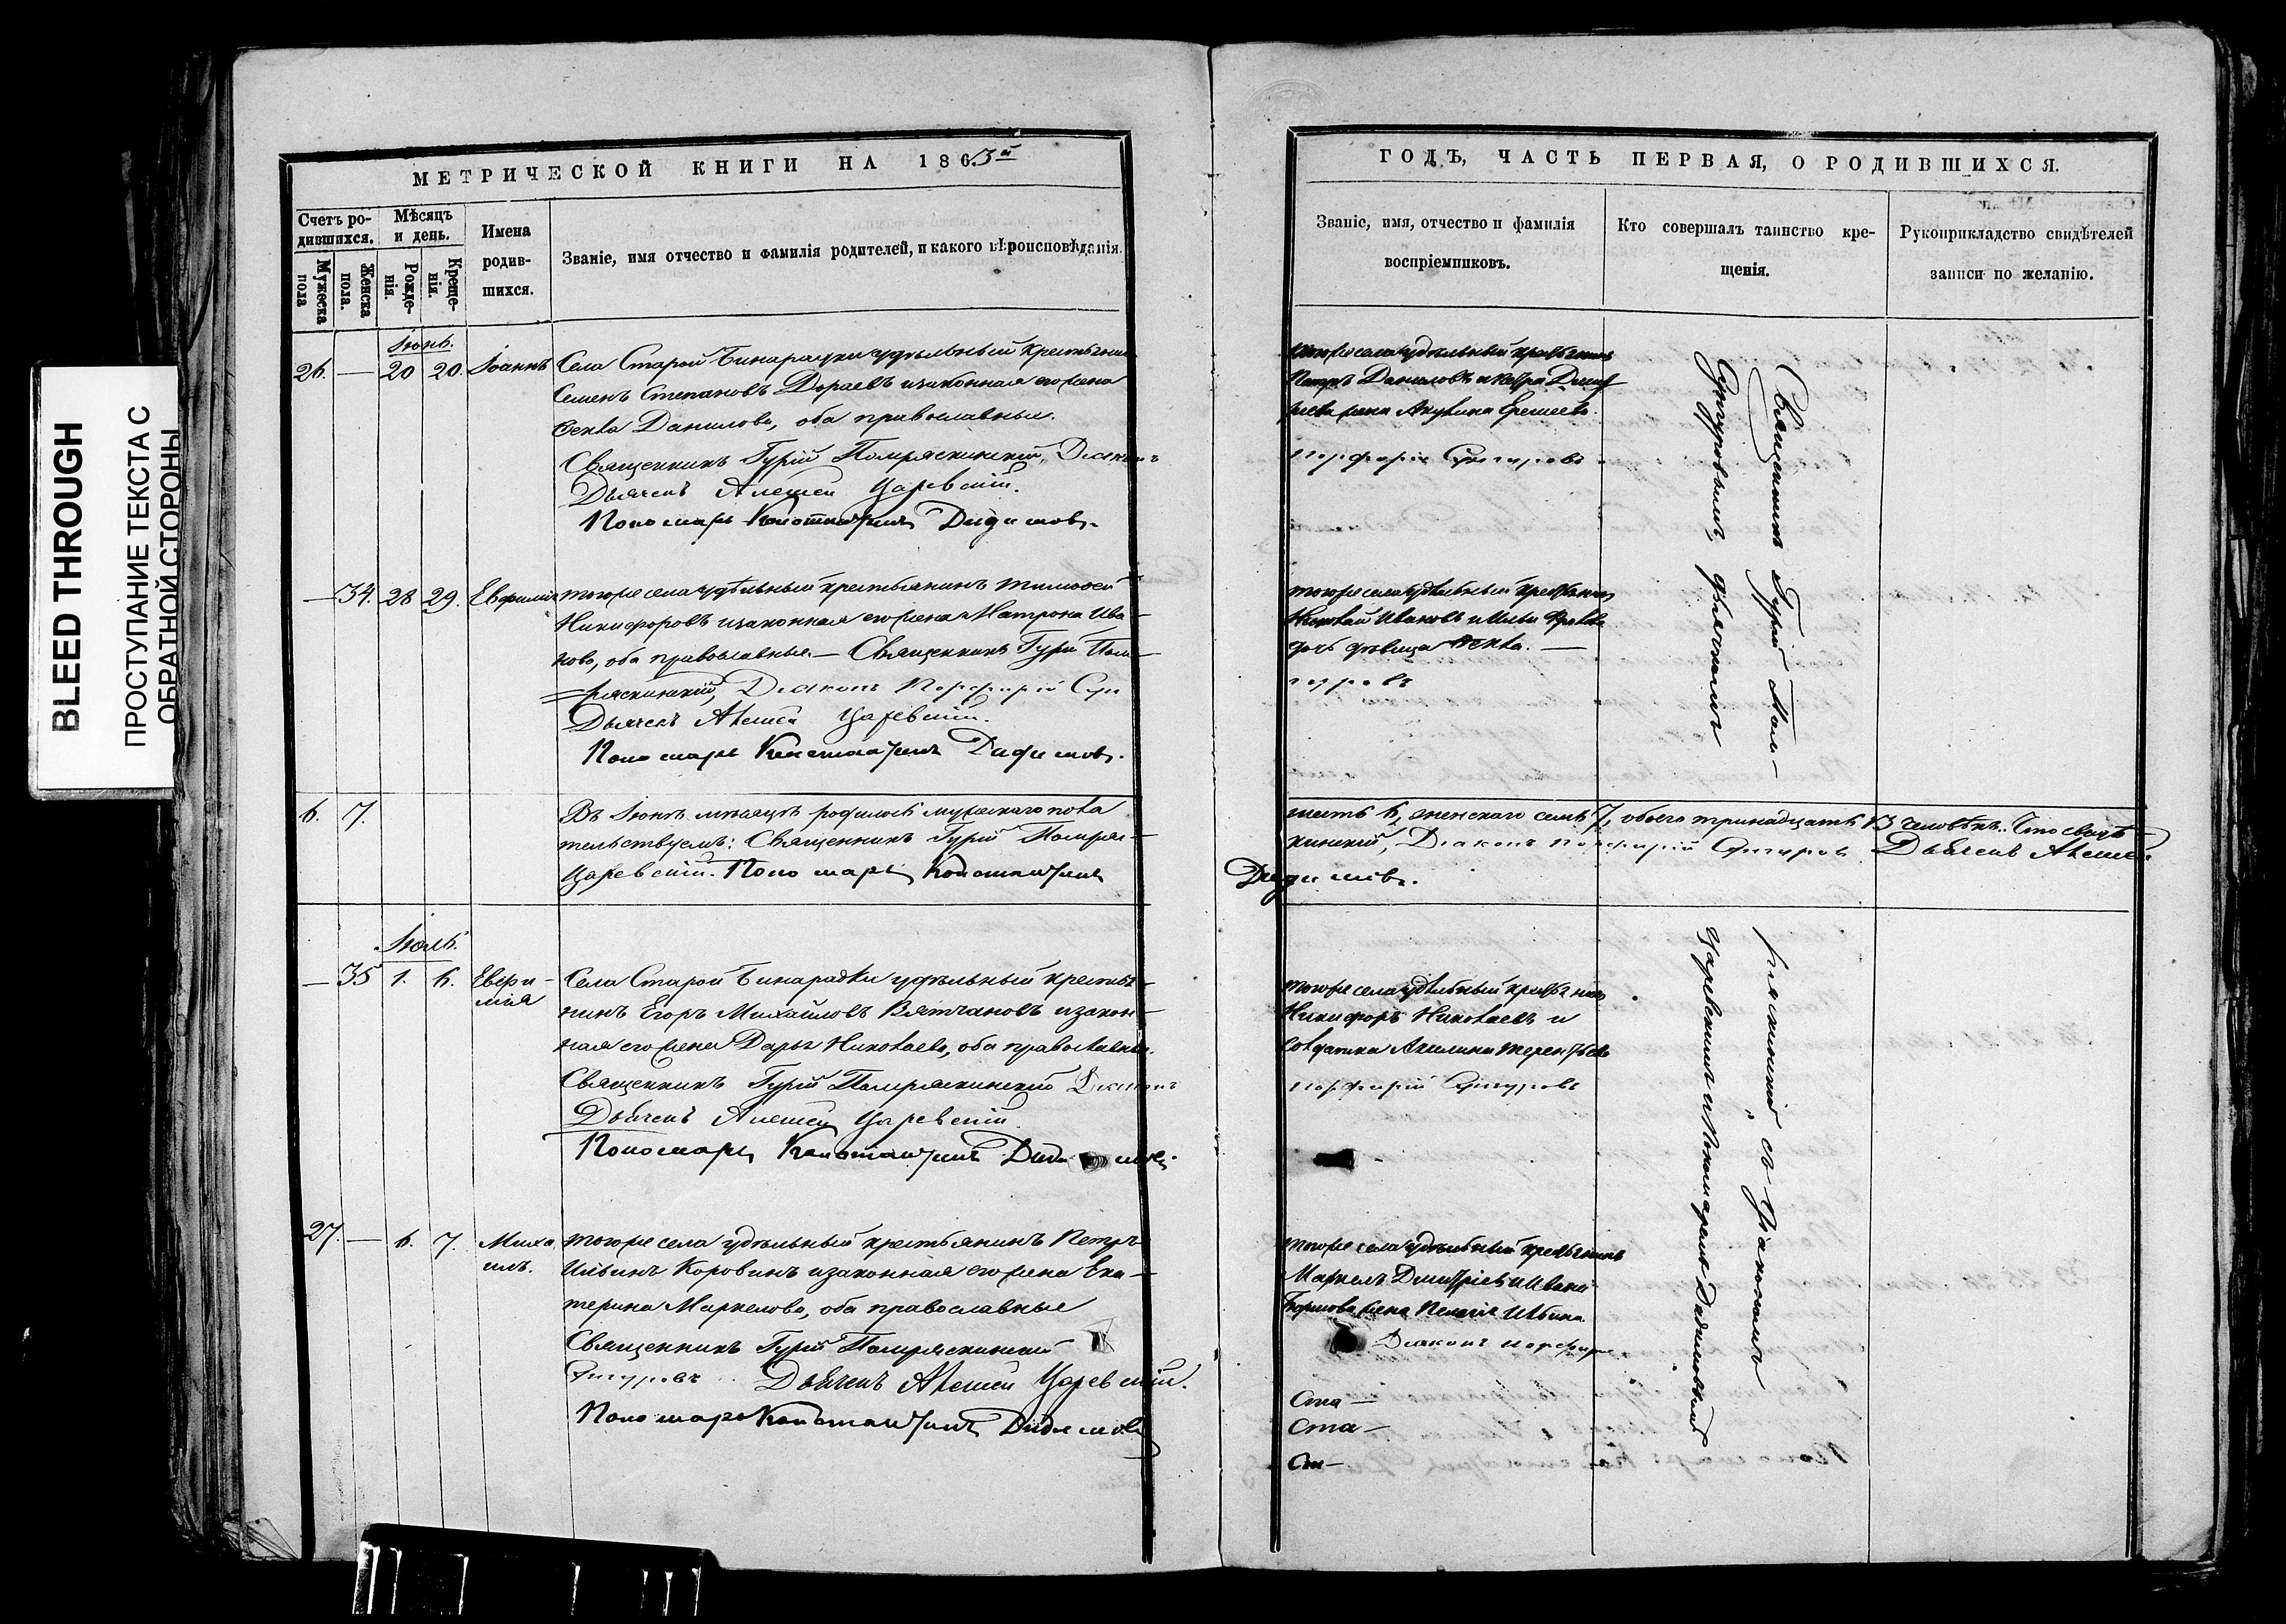 BLEED THROUGH
ПРОСТУПАНИЕ ТЕКСТА С
ОБРАТНОЙ СТОРОНЫ
МЕТРИЧЕСКОЙ КНИГИ НА 1863й
Счетъ ро-
дившихся.
Мужеска
пола
Женска
пола.
Мѣсяцъ
и день.
Рожде-
нія.
Креще-
нія.
Имена
родив-
шихся.
Званіе, имя отчество и фамилія родителей, и какого вѣроисповѣданія.
Іюнь.
26. — 20 20. Іоаннъ
Села Старой Бинарадки удѣльный крестьянинъ
Семенъ Степановъ Дораевъ и законная его жена
Ѳекла Данилова, оба православные.
Священникъ Гурій Помряскинскій, Діаконъ
Дьячекъ Алексей Царевскій.
Пономарь Константинъ Дидимовъ.
— 34. 28 29. Евфимія
того же села удѣльный крестьянинъ Тимоѳей
Никифоровъ и законная его жена Матрона Ива-
нова, оба православные. — Священникъ Гурій Пом-
ряскинскій, Діаконъ Порфирій Сун
Дьячекъ Алексей Царевскій.
Пономарь Константинъ Дидимовъ.
6. 7.
Въ Іюнѣ мѣсяцѣ родилось мужескаго пола
тельствуемъ: Священникъ Гурій Помряс-
Царевскій. Пономарь Константинъ
Іюль.
— 35 1. 6. Евфи-
мія
Села Старой Бинарадки удѣльный крестья-
нинъ Егоръ Михайловъ Вятчановъ и закон-
ная его жена Дарья Николаева, оба православные.
Священникъ Гурій Помряскинскій Діаконъ
Дьячекъ Алексей Царевскій.
Пономарь Константинъ Дидимовъ.
27. — 6. 7. Миха
илъ.
того же села удѣльный крестьянинъ Петръ
Ильинъ Коровинъ и законная его жена Ека-
терина Маркелова, оба православные
Священникъ Гурій Помряскинскій
Дьячекъ Алексей Царевскій.
Пономарь Константинъ Дидимовъ
ГОДЪ, ЧАСТЬ ПЕРВАЯ, О РОДИВШИХСЯ.
Званіе, имя, отчество и фамилія
воспріемниковъ.
Кто совершалъ таинство кре-
щенія.
Рукоприкладство свидѣтелей
записи по желанію.
того же села удѣльный крестьянинъ
Петръ Даниловъ и Димит
ріева жена Акулина
Порфирій
того же села удѣльный крестьянинъ
Николай Ивановъ и Ильи
дочь дѣвица Ѳекла. —
Священникъ Гурій Пом-
дьячкомъ
шесть 6, женскаго семь 7, обоего тринадцать 13 человѣкъ. Что свидѣ-
кинскій, Діаконъ Порфирій Дьячекъ Алексей
Дидимовъ.
того же села удѣльный крестьянинъ
Никифоръ Николаевъ и
солдатка Акилина Терентьева
Порфирій
ряскинскій съ Діакономъ
Царевскимъ и Пономаремъ Дидимовымъ
того же села удѣльный крестьянинъ
Маркелъ Димитріевъ и Ивана
жена Пелагія Ильина.
Діаконъ Порфирій
Ста—
Ста—
Ста—